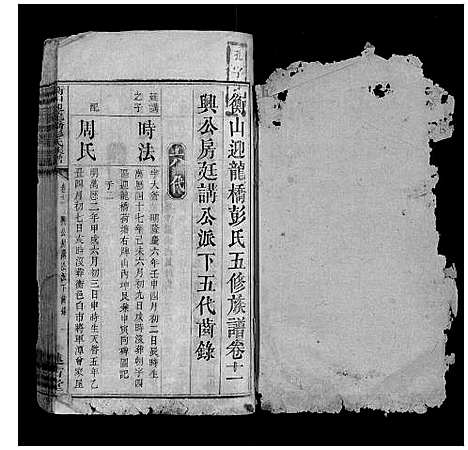 孔字
衡山迎龍橋彭氏五修族譜卷十一
興公房廷講公派下五代齒錄
十六代
廷講之子
時法
字大普明隆慶六年壬申四月初二日辰生
萬曆四十七年己未六月初九日戌時沒葬朝字四
區迎龍橋荷塘右牌山丙坤艮兼申寅同碑圖記
子二
配
周氏
明萬曆二年甲戌六月初三日申時生天啓五年乙
丑四月初七日亥時沒葬衡邑白市將軍潭曾家屋